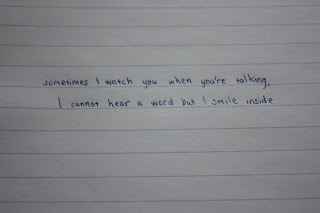 sometimes I watch you when you're talking,
I cannot hear a word but I smile inside